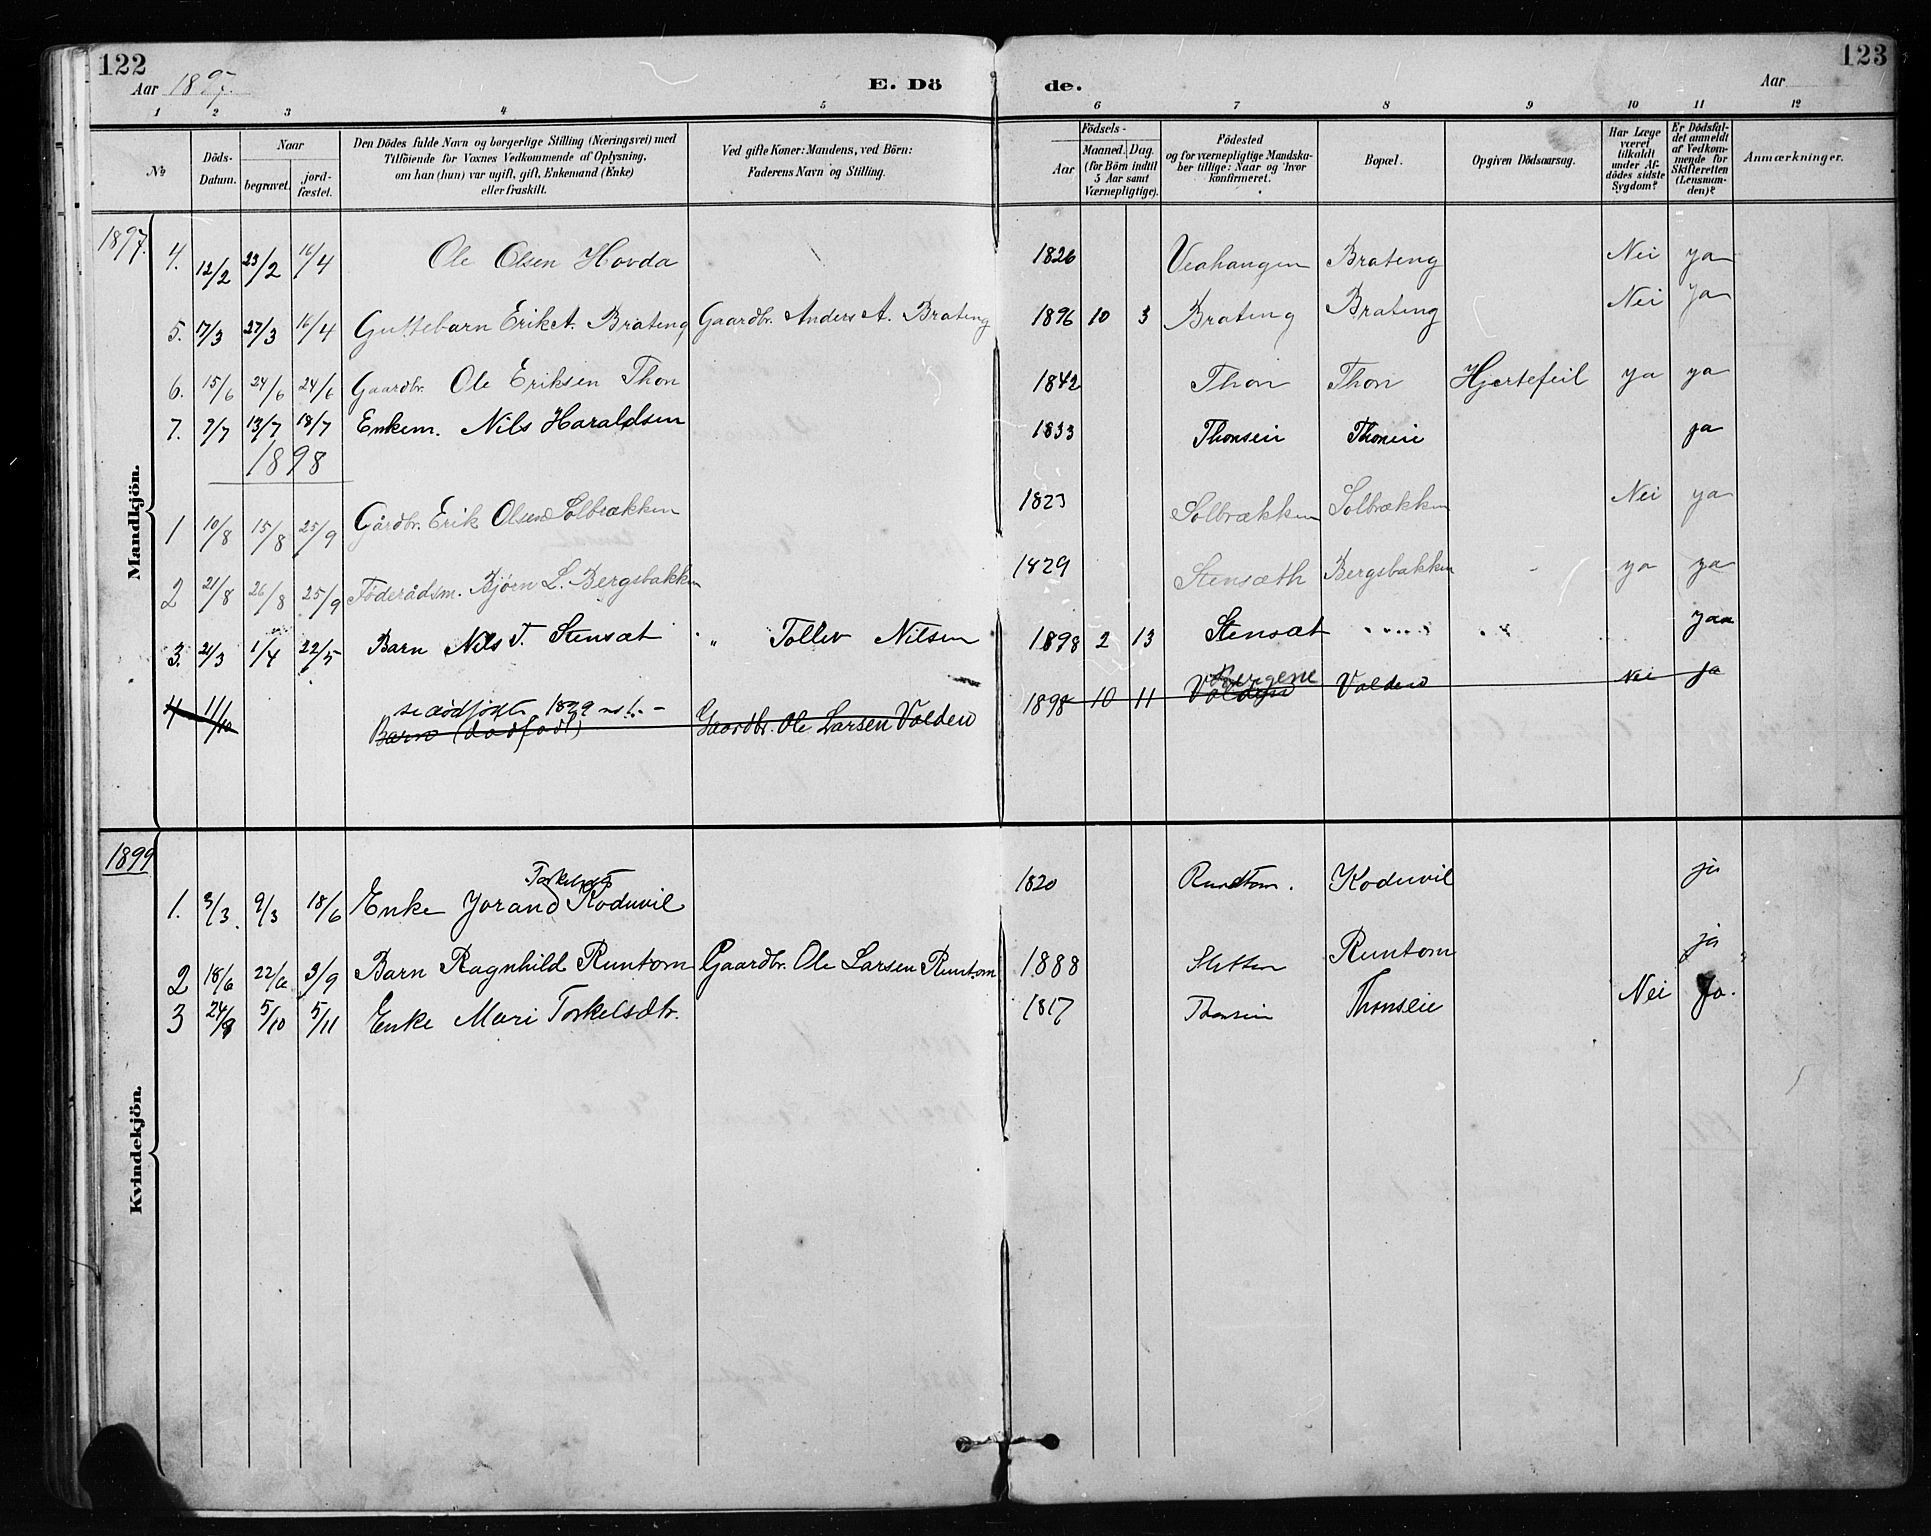 122
Aar 1897.
E. Döde.
Aar
123
1 2 3 4 5 6 7 8 9 10 11 12
No
Döds-Datum.
Naar
begravet.
jordfæstet.
Den Dödes fulde Navn og borgerlige Stilling (Næringsvei) med
Tilföiende for Voxnes Vedkommende af Oplysning,
om han (hun) var ugift, gift, Enkemand (Enke)
eller fraskilt.
Ved gifte Koner: Mandens, ved Börn:
Faderens Navn og Stilling.
Födsels-
Aar
Maaned. Dag.
(for Börn indtil
5 Aar samt
Værnepligtige).
Födested
og for værnepligtige Mandska-
ber tillige: Naar og hvor
konfirmeret.
Bopæl.
Opgiven Dödsaarsag.
Har Læge
været
tilkaldt
under Af-
dödes sidste
Sygdom?
Er Dödsfal-
det anmeldt
af Vedkom-
mende for
Skifteretten
(Lensman-
den)?
Anmærkninger.
Mandkjön.
1897.
4. 12/2 23/2 16/4 Ole Olsen Hovda 1826 Veahangen Brateng Nei ja
5. 17/3 27/3 16/4 Guttebarn Erik A. Brateng Gaardbr. Anders A. Brateng 1896 10 3 Brateng Brateng Nei Ja
6. 15/6 24/6 24/6 Gaardbr. Ole Eriksen Thon 1842 Thon Thon Hjertefeil ja ja
7. 9/7 13/7 18/7 Enkem. Nils Haraldsen 1833 Thonseie Thoneie ja
1898
1 10/8 15/8 25/9 Gårdbr. Erik Olsen Solbrækken 1823 Solbrækken Solbrækken Nei ja
2 21/8 26/8 25/9 Föderådsm. Bjørn L. Bergsbakken 1829 Stensæth Bergsbakken - ja ja
3. 21/3 1/4 22/5 Barn Nils T. Stensæt " Tollev Nilsen 1898 2 13 Stensæt jaa
se dødfødte 1899
Bergene
4 11/10 Barn (dødfødt) Gaardbr. Ole Larsen Volden 1898 10 11 Volden Volden Nei Ja
Kvindekjön.
1899
Torkelsdt
1. 3/3. 9/3 18/6 Enke Jorand Koduvil 1820 Rundtom. Koduvil ja
2 18/6 22/6 3/9 Barn Ragnhild Runtom Gaardbr. Ole Larsen Runtom 1888 Sletten Runtom ja
3 24/9 5/10 5/11 Enke Mari Torkelsdtr. 1817 Thonseie Thonseie Nei Ja.